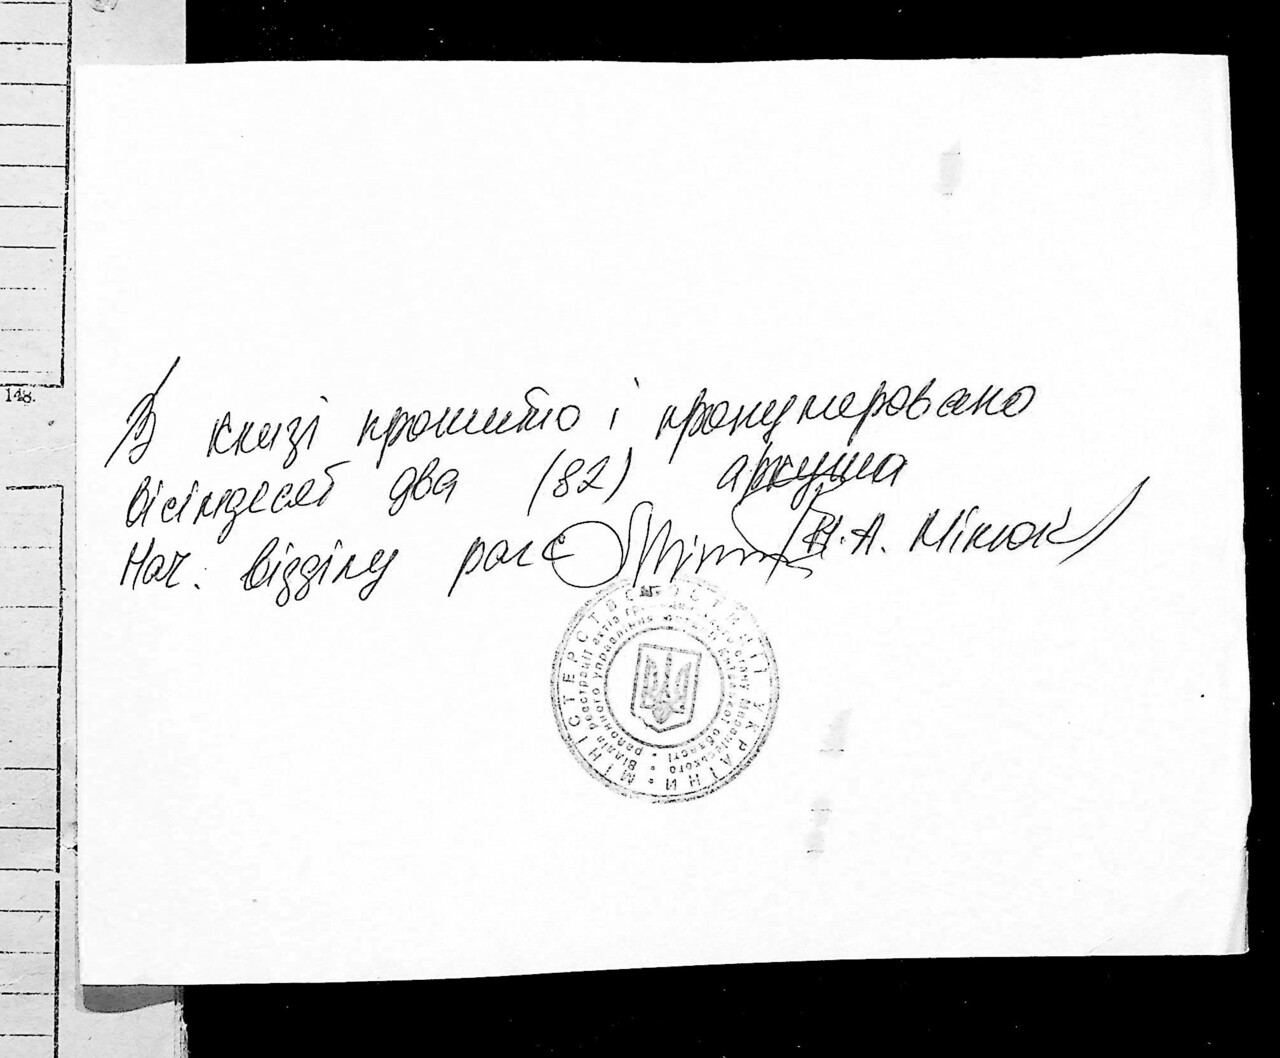 148.
В книзі прошито і пронумеровано
вісімдесят два (82) аркуша
Нач. відділу рагс (Н.А. Мінюк)
МІНІСТЕРСТВО ЮСТИЦІЇ УКРАЇНИ
Відділ реєстрації актів громадянського стану
районного управління юстиції Київської області